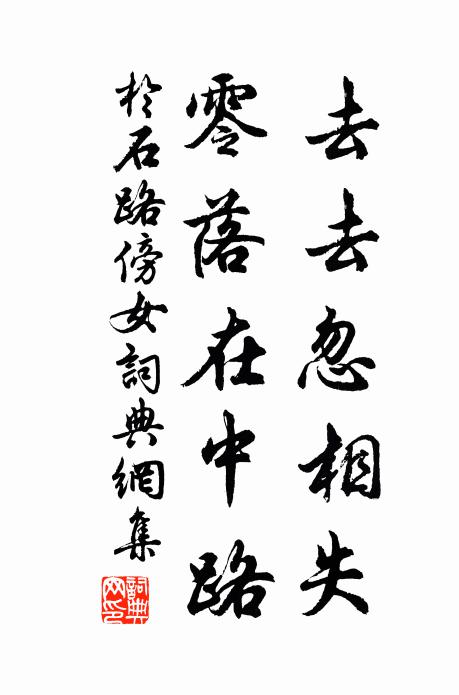 去去忽相失
零落在中路
於石路傍女詞典網集
詞典網印